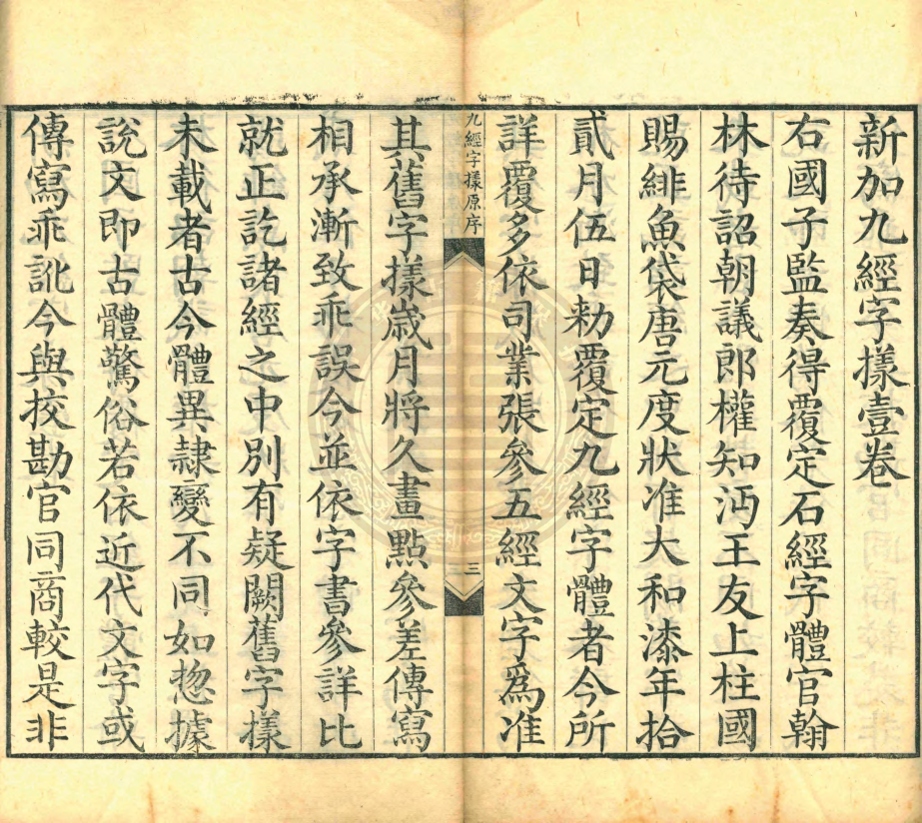 新加九經字㨾壹卷
右國子監奏得覆定石經字體官翰
林待詔朝議郎權知沔王友上柱國
賜緋魚袋唐元度狀准大和漆年拾
貳月伍日勑覆定九經字體者今所
詳覆多依司業張參五經文字爲准
九經字樣原序
三
其舊字樣歳月將久畫點參差傳寫
相承漸致乖誤今並依字書參詳比
就正訖諸經之中別有疑闕舊字樣
未載者古今體異隷變不同如惣據
說文即古體驚俗若依近代文字或
傳寫乖訛今與挍勘官同商較是非